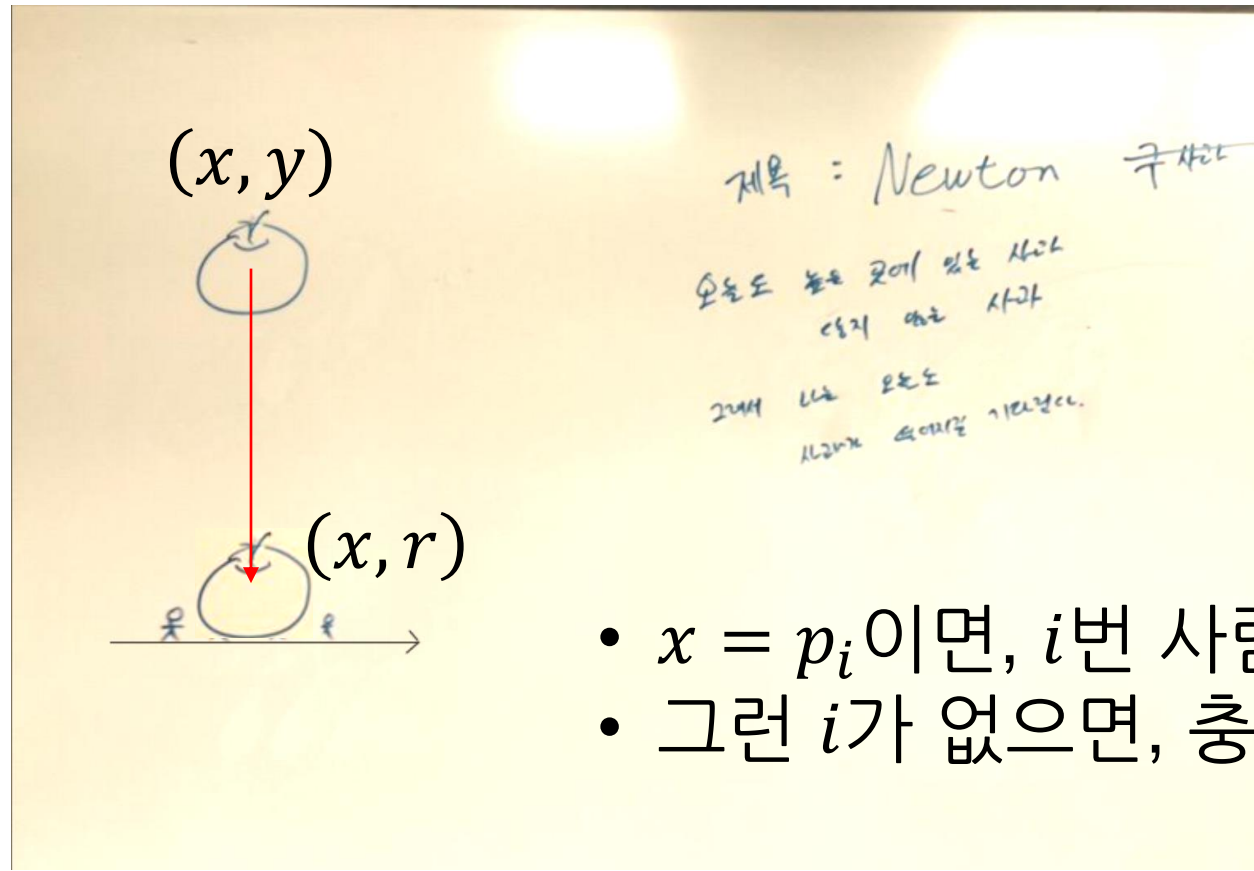 (x, y)
제목 : Newton 구사과
오늘도 높은 곳에 있는 사과
닿지 않는 사과
그래서 나는 오늘도
사과가 떨어지길 기다린다.
(x, r)
• x = pᵢ이면, i번 사람
• 그런 i가 없으면, 충